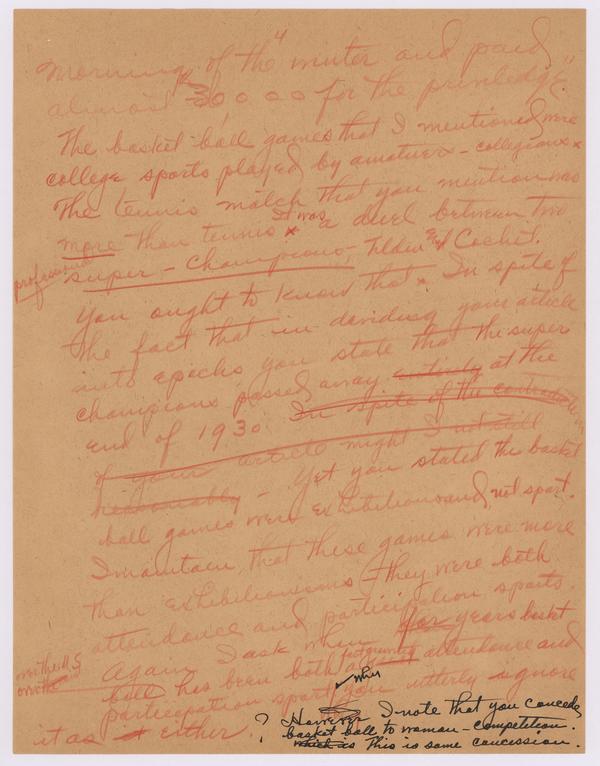 morning of the "winter and paid
almost 30000 for the priviledge."
The basket-ball games that I mentioned were
college sports played by amatuers - collegians
The tennis match that you mention was
more than tennis. It was a duel between two
professional
super-champions, Tilden and Cochet.
You ought to know that. In spite of
the fact that in dividing your article
into epochs you state that the super
champions passed away entirely at the
end of 1930. In spite of the contradiction
of your article might I not still
reasonably - Yet you stated the basket
ball games were exhibitions and not sport.
I maintain that these games were more
than exhibitionisms - they were both
attendance and participation sports.
Again I ask when for years basket
ball has been both attendance and
participation sport why you utterly ignore
it as either.
? However I note that you concede
basket ball to woman - competition.
which is This is some concession.